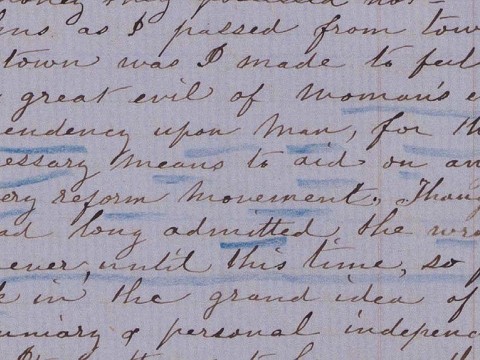 money they possessed not—
ms as I passed from tow
town was I made to feel
great evil of woman's e
endency upon man, for th
essary means to aid on an
ery reform movement. Thoug
ad long admitted the wro
never, until this time, so
k in the grand idea of
uniary & personal independ